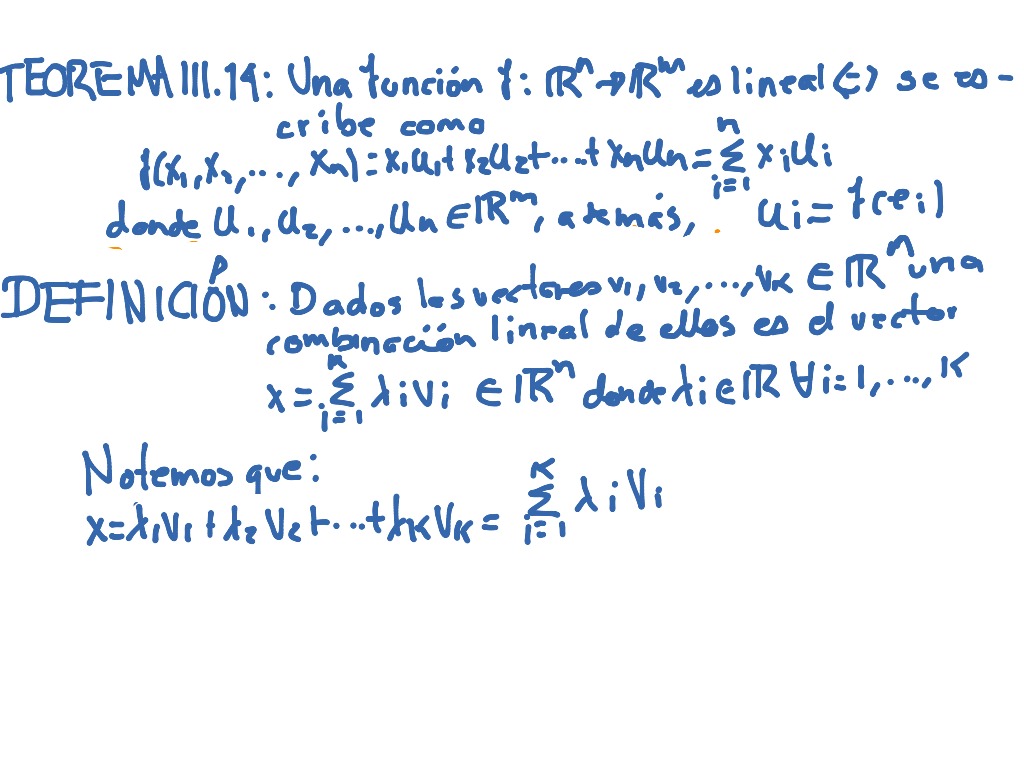 TEOREMA III.14: Una función f: ℝⁿ→ℝᵐ es lineal ⇔ se es-
cribe como
f(x₁,x₂,...,xₙ)=x₁u₁+x₂u₂+...+xₙuₙ=∑ⁿᵢ₌₁ xᵢuᵢ
donde u₁,u₂,...,uₙ∈ℝᵐ, además, uᵢ=f(eᵢ)
DEFINICIÓN: Dados los vectores v₁,v₂,...,vₖ∈ℝⁿ una
combinación lineal de ellos es el vector
x=∑ᵏᵢ₌₁ λᵢvᵢ ∈ℝⁿ donde λᵢ∈ℝ ∀i=1,...,k
Notemos que:
x=λ₁v₁+λ₂v₂+...+λₖvₖ=∑ᵏᵢ₌₁ λᵢvᵢ